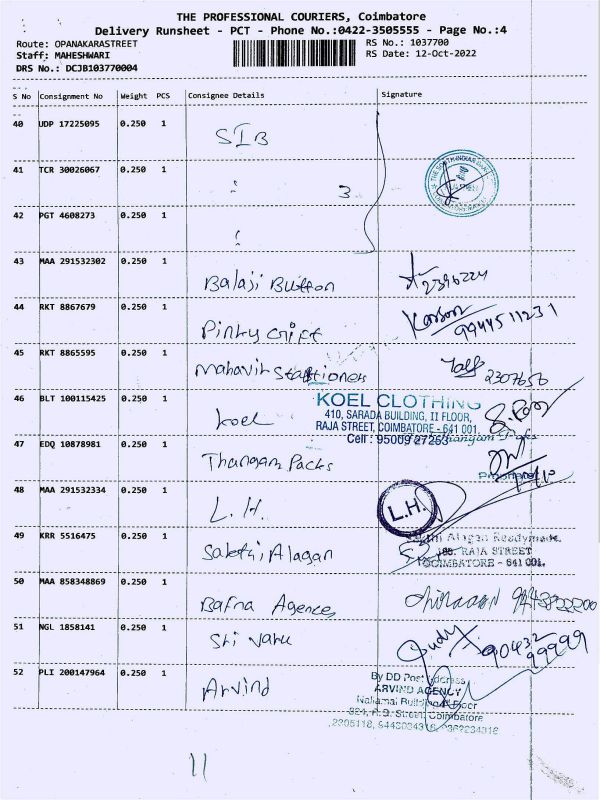 THE PROFESSIONAL COURIERS, Coimbatore
Delivery Runsheet - PCT - Phone No.:0422-3505555 - Page No.:4
Route: OPANAKARASTREET
RS No.: 1037700
Staff: MAHESHWARI
RS Date: 12-Oct-2022
DRS No.: DCJB103770004
S No Consignment No Weight PCS Consignee Details Signature
40 UDP 17225095 0.250 1
SIB
41 TCR 30026067 0.250 1
3
42 PGT 4608273 0.250 1
43 MAA 291532302 0.250 1
Balaji Button
2396224
44 RKT 8867679 0.250 1
Pinky Gift
9944511231
45 RKT 8865595 0.250 1
Mahavir Stationers
2307656
46 BLT 100115425 0.250 1
Koel
KOEL CLOTHING
410, SARADA BUILDING, II FLOOR,
RAJA STREET, COIMBATORE - 641 001.
Cell : 95009 27263
47 EDQ 10878981 0.250 1
Thangam Packs
48 MAA 291532334 0.250 1
L.H.
L.H.
49 KRR 5516475 0.250 1
Sakthi Alagan
Alagan Readymade
RAJA STREET
COIMBATORE - 641 001.
50 MAA 858348869 0.250 1
Bafna Agences
51 NGL 1858141 0.250 1
Sri Varu
90432
99999
52 PLI 200147964 0.250 1
Arvind
By DD Post
ARVIND AGENCY
Street, Coimbatore
11